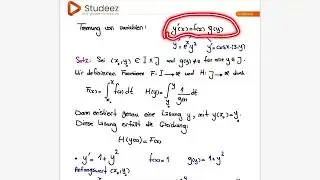 Studeez
Trennung von Variablen: y'(x) = f(x) g(y)
y' = eˣ y² y' = cos x · (3-y)
Satz: Sei (x₀, y₀) ∈ I × J und g(y) ≠ 0 für alle y ∈ J.
Wir definieren Funktionen F: I → ℝ und H: J → ℝ durch
F(x) = ∫ f(t) dt H(y) = ∫ 1/g(t) dt
Dann existiert genau eine Lösung y mit y(x₀) = y₀.
Diese Lösung erfüllt die Gleichung:
H(y(x)) = F(x)
• y' = 1 + y² f(x) = 1 g(y) = 1 + y²
Anfangswert (x₀, y₀)